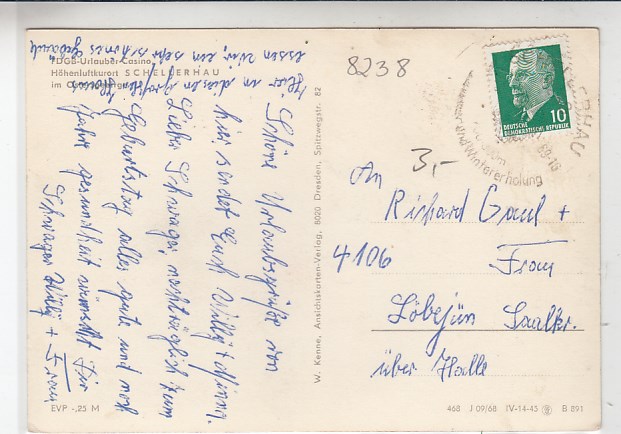 FDGB-Urlauber-Casino
Höhenluftkurort SCHELLERHAU
im
EVP -,25 M
Schöne Urlaubsgrüße von
hier sendet Euch Willy +
Lieber Schwager nachträglich zum
Geburtstag alles gute und noch
Jahre gesundheit wünscht Dir
Schwager Willy + Frau
Hier in diesem
essen wir, ein sehr schönes Gebäude
W. Kenne, Ansichtskarten-Verlag, 8020 Dresden, Spitzwegstr. 82
8238
3,-
10
DEUTSCHE
DEMOKRATISCHE REPUBLIK
und Wintererholung
An
Richard Gaul +
4106 Frau
Löbejün Saalkr.
über Halle
468 J 09/68 IV-14-45 B 891